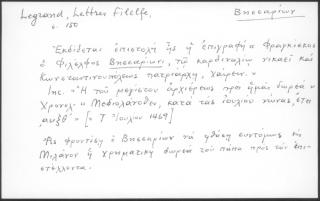 Legrand, Lettres Filelfe, Βησσαρίων
σ. 150
Ἐκδίδεται ἐπιστολὴ ἧς ἡ ἐπιγραφή «Φραγκίσκος
ὁ Φιλέλφος Βησσαρίωνι, τῷ καρδιναλίῳ νικαεῖ καὶ
Κωνσταντινουπόλεως πατριάρχῃ, χαίρειν.»
Inc. «Ἡ τοῦ μεγίστου ἀρχιερέως πρὸς ἡμᾶς δωρεά»
Χρονολ. «Μεδιολάνοθεν, κατὰ τὰς ἰουνίου νώνας, ἔτει
αυξθ΄» [= 5 Ἰουνίου 1469]
Ἂς φροντίσῃ ὁ Βησσαρίων νὰ φθάσῃ συντόμως εἰς
Μιλάνον ἡ χρηματικὴ δωρεὰ τοῦ πάπα πρὸς τὸν ἐπι-
στέλλοντα.